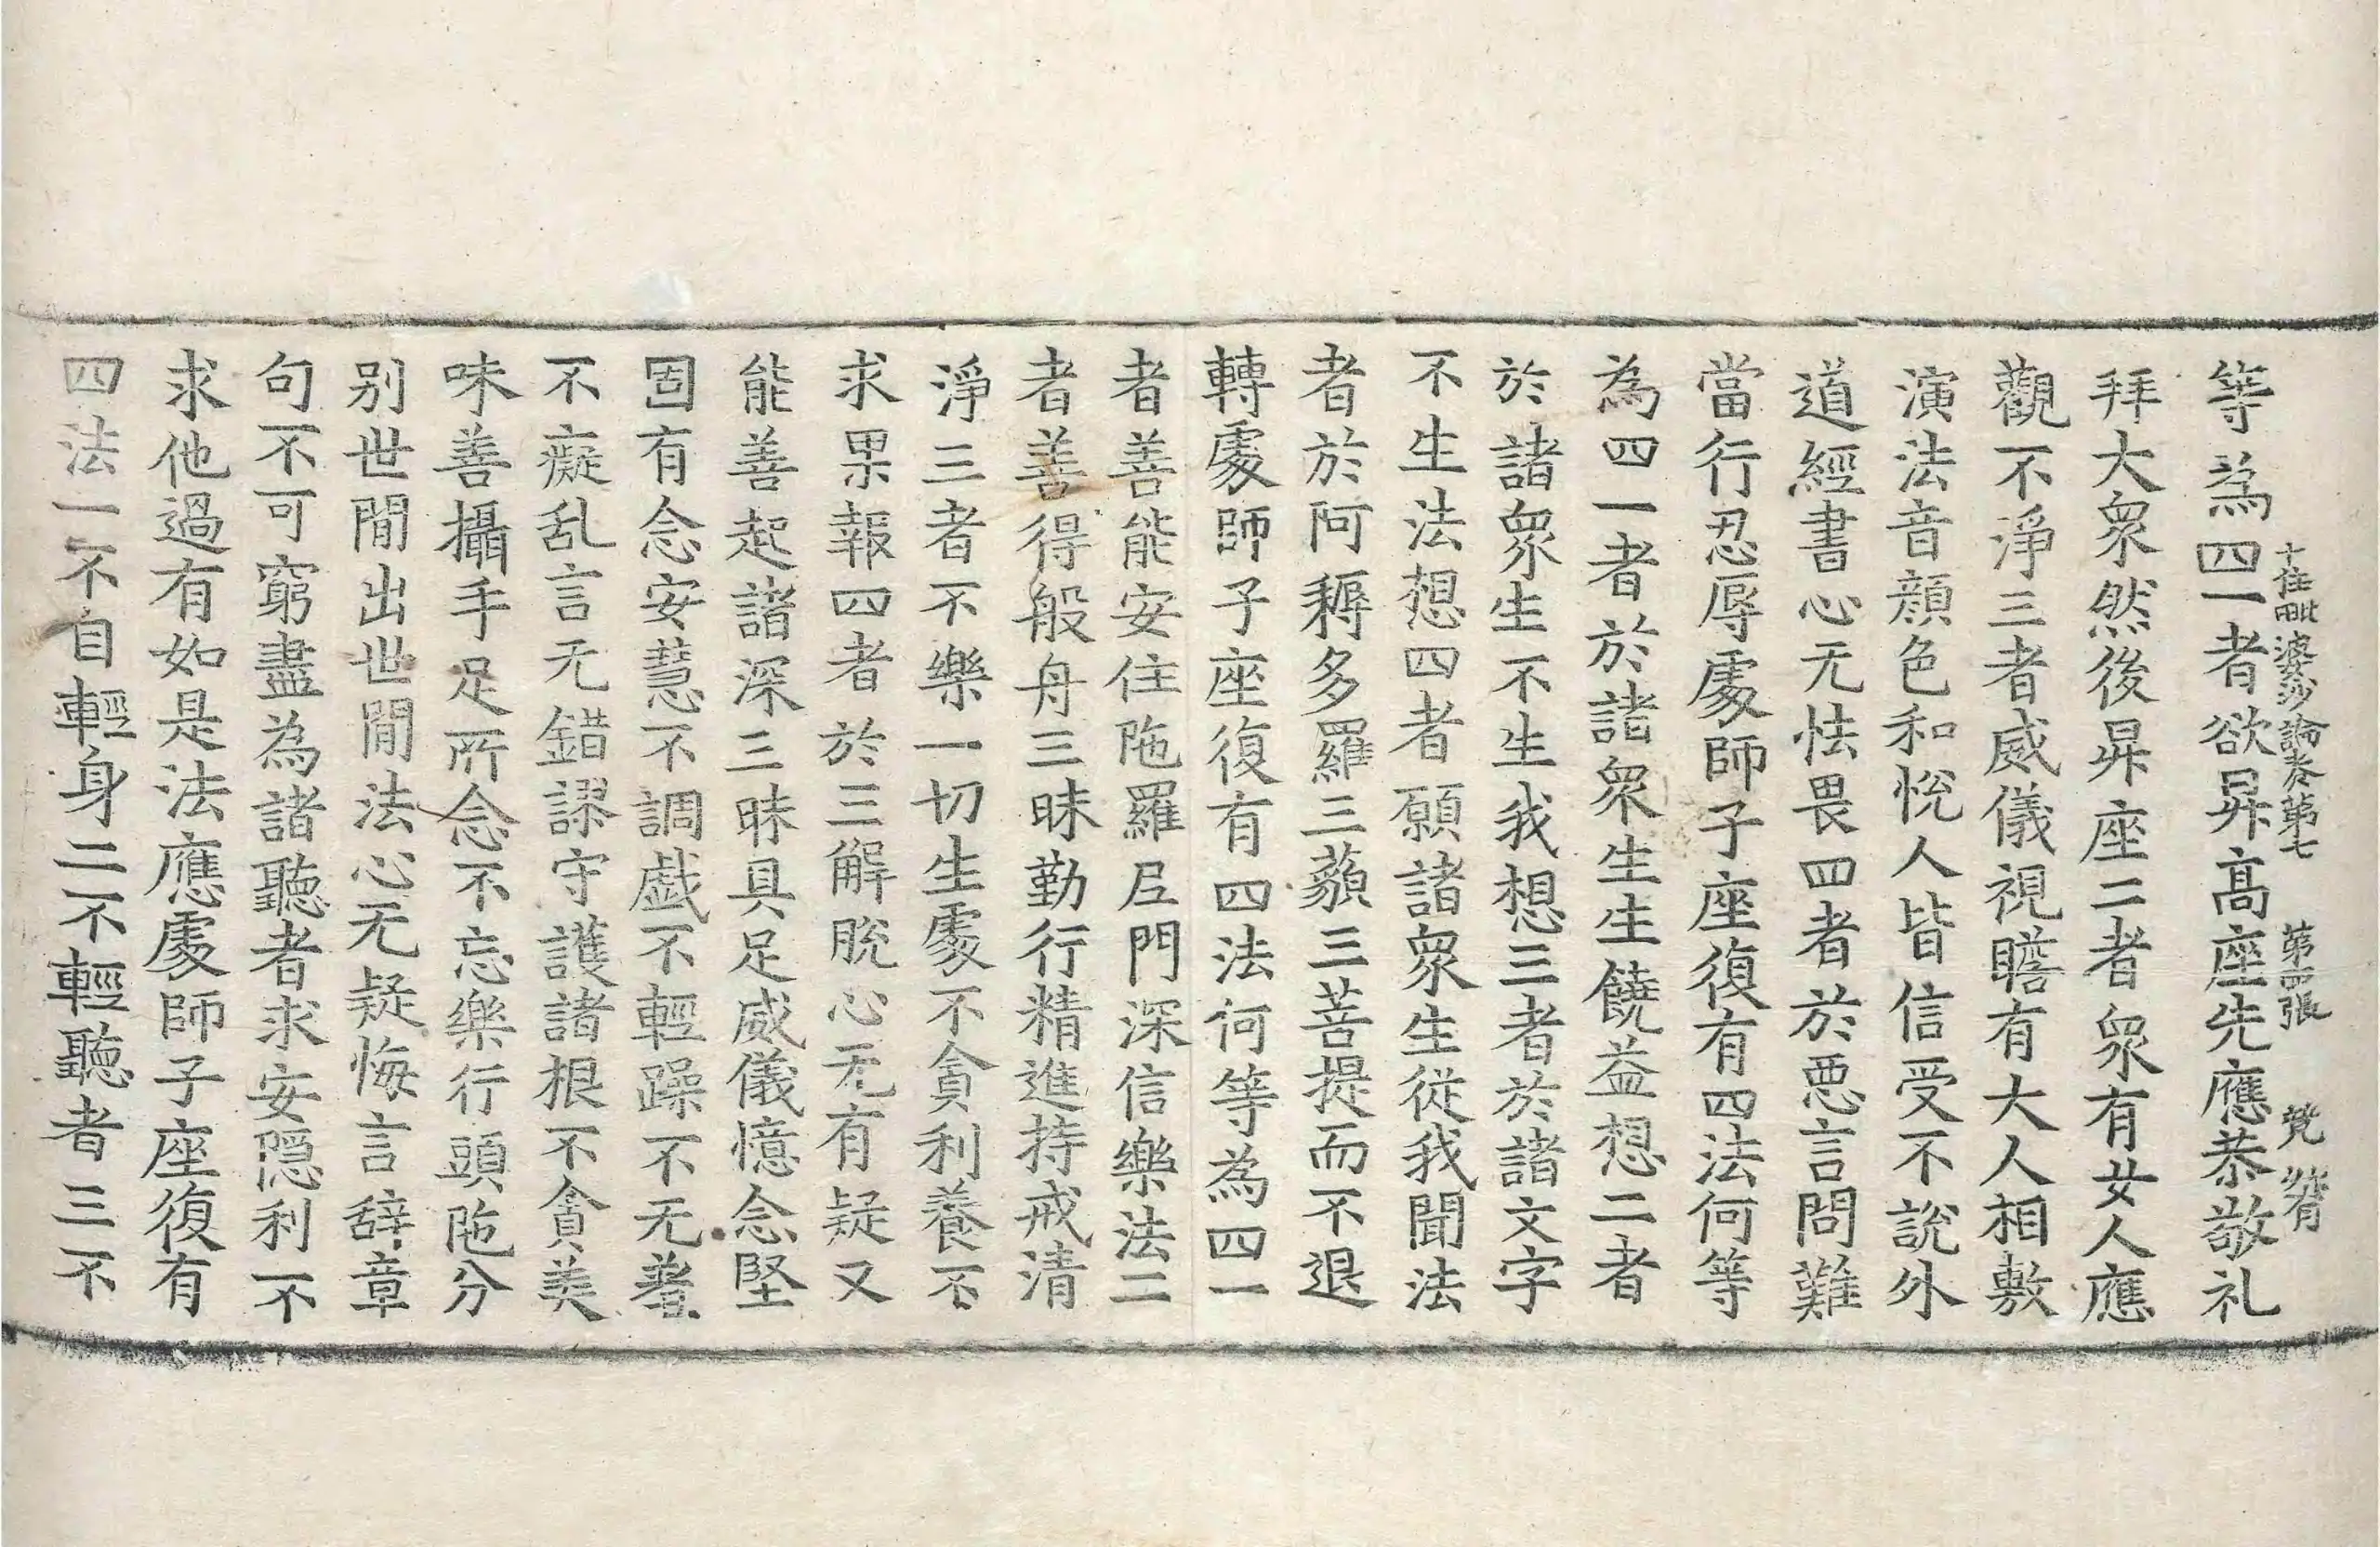 十住毗婆沙論卷第七　第西張　㷀
等為四一者欲昇高座先應恭敬礼
拜大衆然後昇座二者衆有女人應
觀不淨三者威儀視瞻有大人相敷
演法音顔色和悅人皆信受不說外
道經書心无怯畏四者於惡言問難
當行忍辱處師子座復有四法何等
為四一者於諸衆生生饒益想二者
於諸衆生不生我想三者於諸文字
不生法想四者願諸衆生從我聞法
者於阿耨多羅三藐三菩提而不退
轉處師子座復有四法何等為四一
者善能安住陁羅𡰱門深信樂法二
者善得般舟三昧勤行精進持戒清
淨三者不樂一切生處不貪利養不
求果報四者於三解脫心无有疑又
能善起諸深三昧具足威儀憶念堅
固有念安慧不調戱不輕躁不无羞
不癡乱言无錯謬守護諸根不貪美
味善攝手足所念不忘樂行頭陁分
别世閒出世閒法心无疑悔言辞章
句不可窮盡為諸聽者求安隱利不
求他過有如是法應處師子座復有
四法一不自輕身二不輕聽者三不